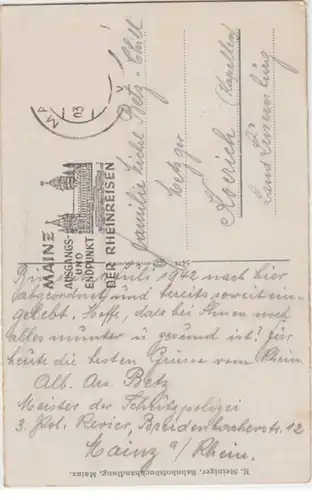 MAINZ
AUSGANGS-
UND
ENDPUNKT
DER RHEINREISEN
Familie Michel Betz-Thill
Metzger
Koerich (Kapellen)
Land Luxemburg
Bin seit Juli 1942 nach hier
abgeordnet und bereits soweit ein-
gelebt. Hoffe, dass bei Ihnen noch
alles munter u gesund ist? Für
heute die besten Grüsse vom Rhein.
Alb. Betz
Meister der Schutzpolizei
3. Pol. Revier, Breidenbacherstr. 12
Mainz a/Rhein.
K. Steiniger, Bahnhofsbuchhandlung, Mainz.